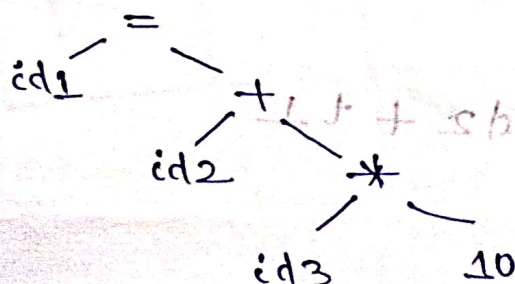 =
id1
+
id2
*
id3 10